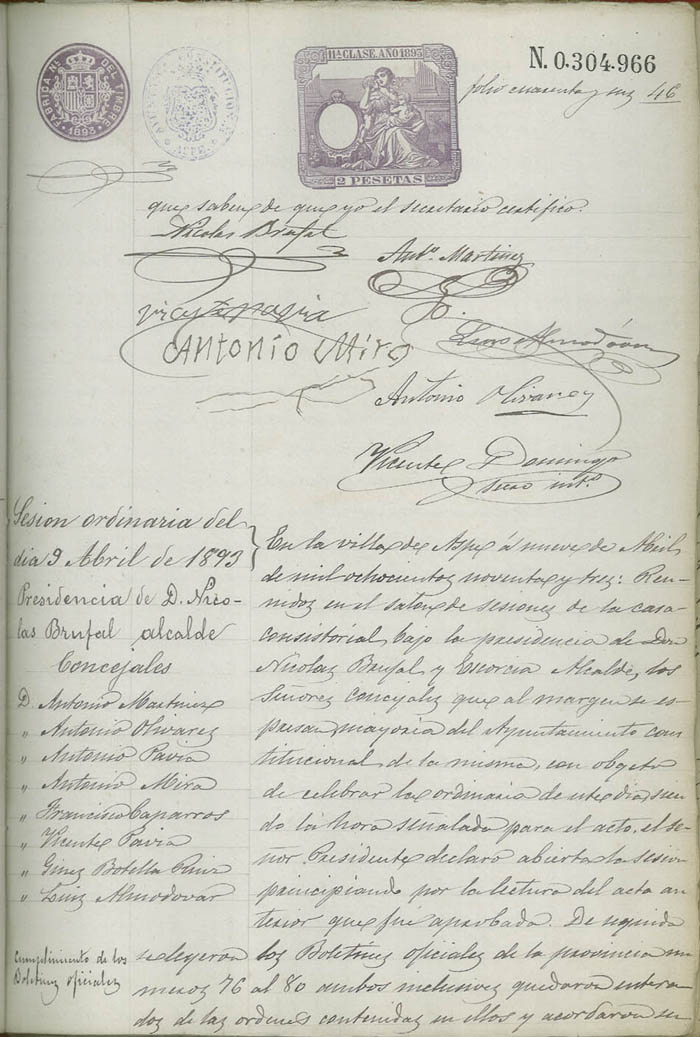 FABRICA Nal DEL TIMBRE
1893
11ª CLASE. AÑO 1893
2 PESETAS
N. 0.304.966
folio cuarenta y seis 46
que saben de que yo el secretario certifico.
Nicolas Brufal
Antº. Martinez
Vicente Pavia
Antonio Miro
Luis Almodóvar
Antonio Olivarez
Vicente Domingo
Srio intº.
Sesion ordinaria del
dia 9 Abril de 1893
Presidencia de D. Nico-
las Brufal alcalde
Concejales
D. Antonio Martinez
" Antonio Olivarez
" Antonio Pavia
" Antonio Mira
" Francisco Caparros
" Vicente Pavia
" Ginez Botella Ruiz
" Luiz Almodovar
En la villa de Aspe á nueve de Abril
de mil ochocientos noventa y trez: Reu-
nidos en el salon de sesionez de la casa
consistorial, bajo la presidencia de Don
Nicolas Brufal y Escorcia Alcalde, los
Señorez concejalez que al margen se es-
presan, mayoria del Ayuntamiento cons-
titucional de la misma, con objeto
de celebrar la ordinaria de este dia, sien-
do la hora señalada para el acto, el se-
ñor Presidente declaro abierta la sesion
principiando por la lectura del acta an-
terior que fue aprobada. De seguida
Cumplimiento de los
Boletinez oficialez
se leyeron los Boletinez oficialez de la provincia nu-
meroz 76 al 80 ambos inclusivez quedaron entera-
doz de laz ordenez contenidaz en ellos y acordaron su